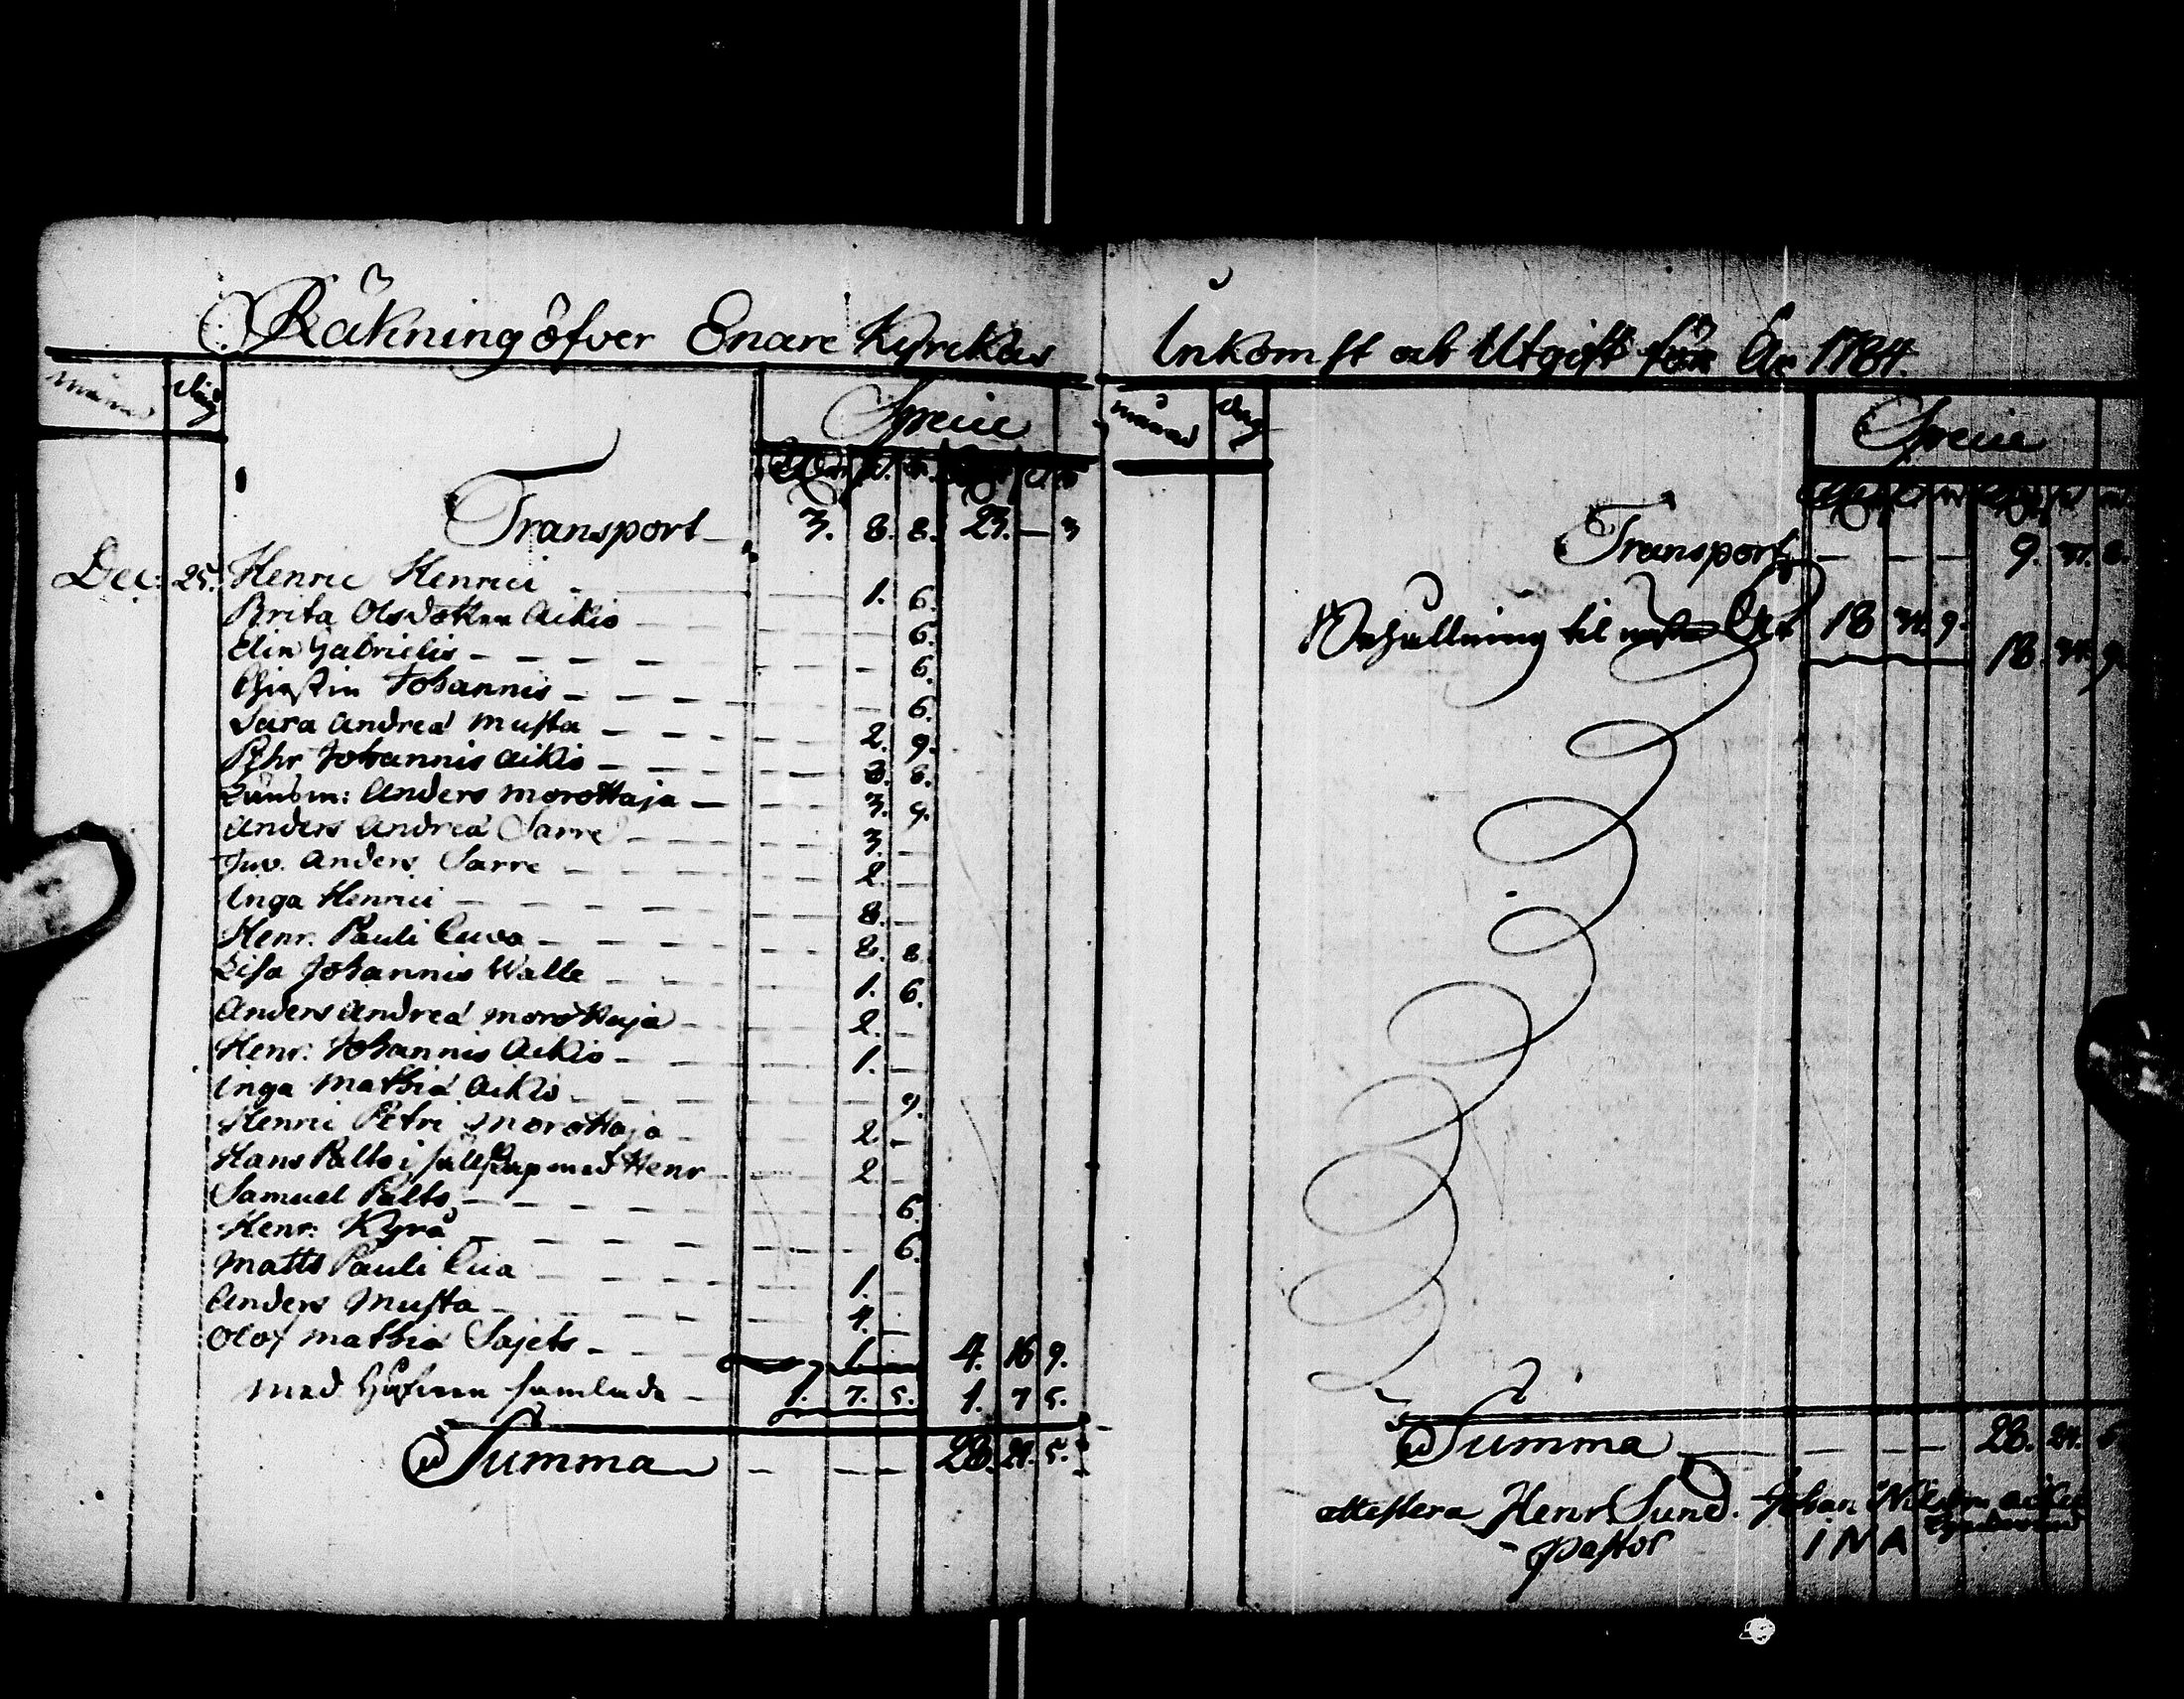 Räkning öfver Enare Kyrckas
månad dag Specie
Transport 3. 8. 8. 23. — 3
Dec: 25. Henric Henrici — 1. 6.
Brita Olsdotter Aikio — 6.
Elin Gabrielis — 6.
Christin Johannis — 6.
Sara Andreæ Musta — 2. 9.
Pehr Johannis Aikio — 3. 6.
Länsm: Anders Morottaja — 3. 9.
Anders Andreæ Sarre — 3. —
Juv. Anders Sarre — 2. —
Inga Henrici — 8. —
Henr. Pauli Cuva — 2. 8.
Lisa Johannis Walle — 1. 6.
Anders Andreæ Morottaja — 2. —
Henr. Johannis Aikio — 1. —
Inga Mathiæ Aikio — 9.
Henric Petri Morottaja — 2. —
Hans Palto i sällskap med Henr — 2. —
Samuel Palto — 6.
Henr: Kyrå — 6.
Matts Pauli Cua — 1. —
Anders Musta — 4. —
Olof Mathiæ Sajets — 1. — 4. 16 9.
med Håfven samlade — 1. 7. 5. 1. 7 5.
Summa — — — 28. 24. 5.
Inkomst och Utgift för År 1784.
månad dag Specie
Transport — — — 9. 31. 8.
Behållning til nästa År 18 34. 9. 18. 34. 9
Summa — — — 28. 24. 5
attestera Henr. Sund. Johan Nilsson Aikio
Pastor I N A